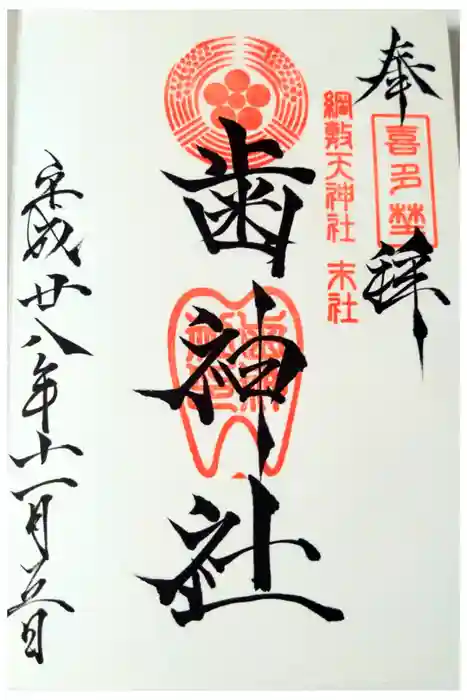 奉拝
喜多埜
綱敷天神社 末社
歯神社
平成廿八年十一月五日